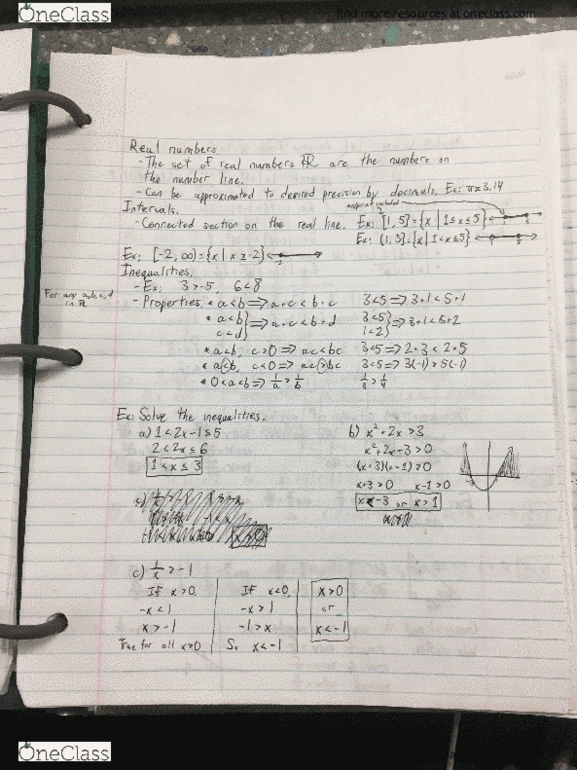 OneClass
find more resources at oneclass.com
Real numbers.
- The set of real numbers ℝ are the numbers on
the number line.
- Can be approximated to desired precision by decimals. Ex: π≈3.14
Intervals.
endpoint included
- Connected section on the real line. Ex: [1,5]={x|1≤x≤5}
Ex: (1,5]={x|1<x≤5}
Ex: [-2,∞)={x|x≥-2}
-2
Inequalities.
- Ex: 3>-5, 6<8
For any a,b,c,d
in ℝ
- Properties • a<b ⟹ a+c<b+c 3<5 ⟹ 3+1<5+1
• a<b
c<d} ⟹ a+c<b+d 3<5
1<2} ⟹ 3+1<5+2
• a<b, c>0 ⟹ ac<bc 3<5 ⟹ 2·3<2·5
• a<b, c<0 ⟹ ac>bc 3<5 ⟹ 3(-1)>5(-1)
• 0<a<b ⟹ 1/a > 1/b 1/3 > 1/4
Ex: Solve the inequalities.
a) 1<2x-1≤5
2<2x≤6
1<x≤3
b) x²+2x>3
x²+2x-3>0
(x+3)(x-1)>0
x+3>0 x-1>0
x<-3 or x>1
-3
c) 1/x > -1
If x>0,
-x<1
x>-1
True for all x>0
If x<0,
-x>1
-1>x
So x<-1
x>0
or
x<-1
OneClass